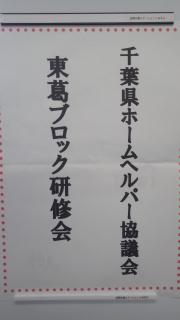 千葉県ホームヘルパー協議会
東葛ブロック研修会